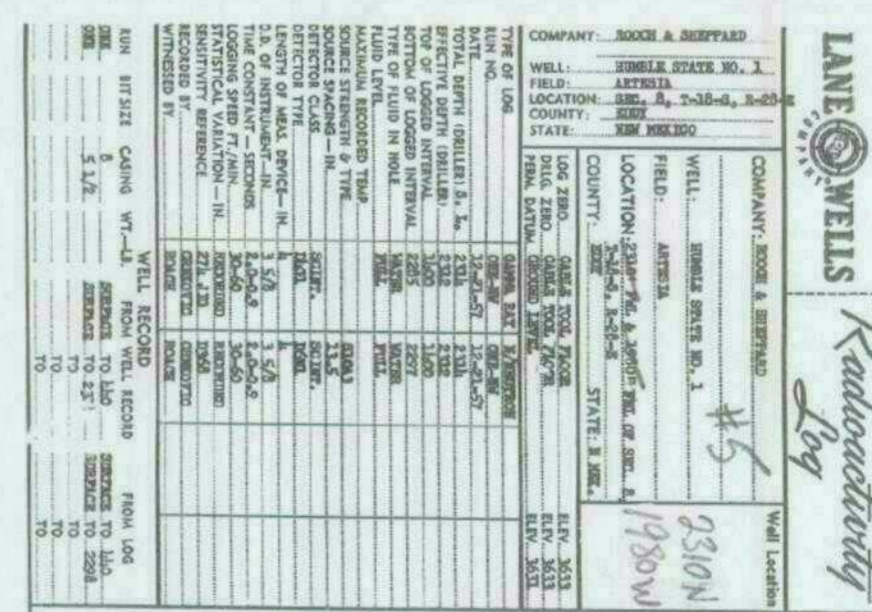 LANE WELLS
COMPANY
Radioactivity
Log
COMPANY: ROOCH & SHEPPARD
WELL: HUMBLE STATE NO. 1
FIELD: ARTESIA
LOCATION: SEC. 8, T-18-S, R-28-E
COUNTY: EDDY
STATE: NEW MEXICO
COMPANY: ROOCH & SHEPPARD
WELL: HUMBLE STATE NO. 1
#5
FIELD: ARTESIA
LOCATION: 2310' FNL & FWL OF SEC. 8,
T-18-S, R-28-E
COUNTY: EDDY STATE: N MEX.
Well Location
2310N
1980W
LOG ZERO CABLE TOOL FLOOR ELEV. 3633
DRLG. ZERO CABLE TOOL FLOOR ELEV. 3633
PERM. DATUM GROUND LEVEL ELEV. 3633
TYPE OF LOG GAMMA RAY N/NEUTRON
RUN NO. ONE-NW ONE-NW
DATE 12-21-57 12-21-57
TOTAL DEPTH (DRILLER) S. L. 2314 2314
EFFECTIVE DEPTH (DRILLER) 2312 2312
TOP OF LOGGED INTERVAL 1400 1400
BOTTOM OF LOGGED INTERVAL 2285 2297
TYPE OF FLUID IN HOLE WATER WATER
FLUID LEVEL FULL FULL
MAXIMUM RECORDED TEMP.
SOURCE STRENGTH & TYPE
SOURCE SPACING—IN. 13.5
DETECTOR CLASS SCINT. SCINT.
DETECTOR TYPE
LENGTH OF MEAS. DEVICE—IN. 4 4
O.D. OF INSTRUMENT—IN. 3 5/8 3 5/8
TIME CONSTANT—SECONDS 2.0-0.9 2.0-0.9
LOGGING SPEED FT./MIN. 30-60 30-60
STATISTICAL VARIATION—IN. RECORDED RECORDED
SENSITIVITY REFERENCE
RECORDED BY
WITNESSED BY ROACH ROACH
WELL RECORD
RUN BIT SIZE CASING WT.—LB. FROM WELL RECORD FROM LOG
ONE 8 SURFACE TO 440 SURFACE TO 440
ONE 5 1/2 SURFACE TO SURFACE TO 2298
TO TO
TO TO
TO TO
TO TO